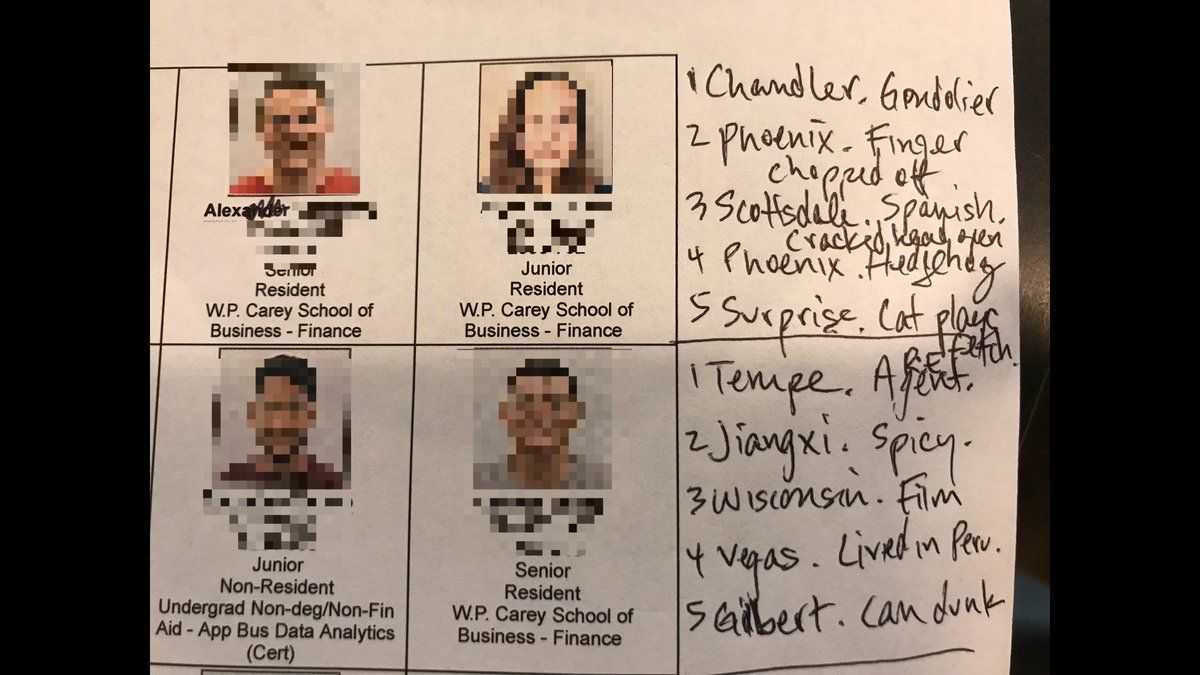 Alexander
Senior
Resident
W.P. Carey School of
Business - Finance
Junior
Resident
W.P. Carey School of
Business - Finance
1 Chandler. Gondolier
2 Phoenix. Finger
chopped off
3 Scottsdale. Spanish.
cracked head open
4 Phoenix. Hedgehog
5 Surprise. Cat plays
fetch.
Junior
Non-Resident
Undergrad Non-deg/Non-Fin
Aid - App Bus Data Analytics
(Cert)
Senior
Resident
W.P. Carey School of
Business - Finance
R.E.
1 Tempe. Agent.
2 Jiangxi. Spicy.
3 Wisconsin. Film
4 Vegas. Lived in Peru.
5 Gilbert. Can dunk